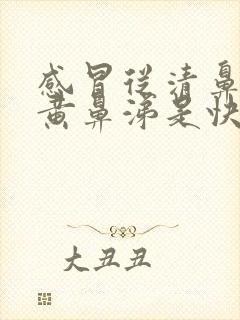 感冒从清鼻
黄鼻涕是快
大丑丑